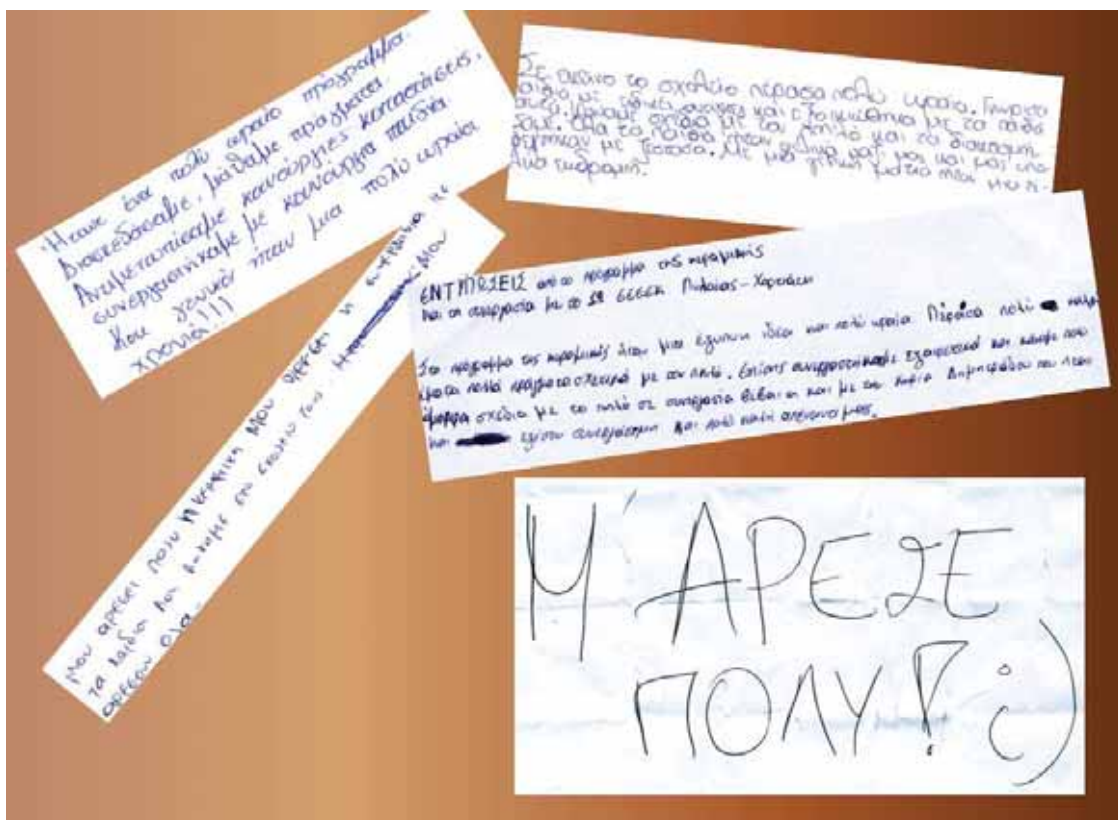 Ήτανε ένα πολύ ωραίο πρόγραμμα.
Διασκεδάσαμε, μάθαμε πράγματα.
Αντιμετωπίσαμε καινούργιες καταστάσεις,
συνεργαστήκαμε με καινούργια παιδιά.
Και γενικά ήταν μια πολύ ωραία
χρονιά!!!
Σε εκείνο το σχολείο πέρασα πολύ ωραία. Γνώρισα
παιδιά με ειδικές ανάγκες και εξοικειώθηκα με τα παιδιά
αυτά. Κάναμε σχέδια με τον πηλό και τα
Όλα τα παιδιά ήταν φίλοι μας και μας
με Με μια γενική ματιά ήταν μια
εκδρομή.
Μου αρέσει πολύ Μου αρέσει η με
τα παιδιά και πού πάμε στο σχολείο τους. Μου
αρέσουν όλα.
ΕΝΤΥΠΩΣΕΙΣ από το πρόγραμμα της κεραμικής
και τη συνεργασία με το ΕΕΕΕΚ Πυλαίας-Χορτιάτη
Στο πρόγραμμα της κεραμικής ήταν μια έξυπνη ιδέα και πολύ ωραία. Πέρασα πολύ
έμαθα πολλά πράγματα σχετικά με τον πηλό. Επίσης συνεργαστήκαμε εξαιρετικά και κάναμε πολύ
όμορφα σχέδια με το πηλό σε συνεργασία βέβαια και με την κυρία Δημητριάδου που ήταν
και πολύ καλή απέναντί μας.
Μ' ΑΡΕΣΕ
ΠΟΛΥ! :)